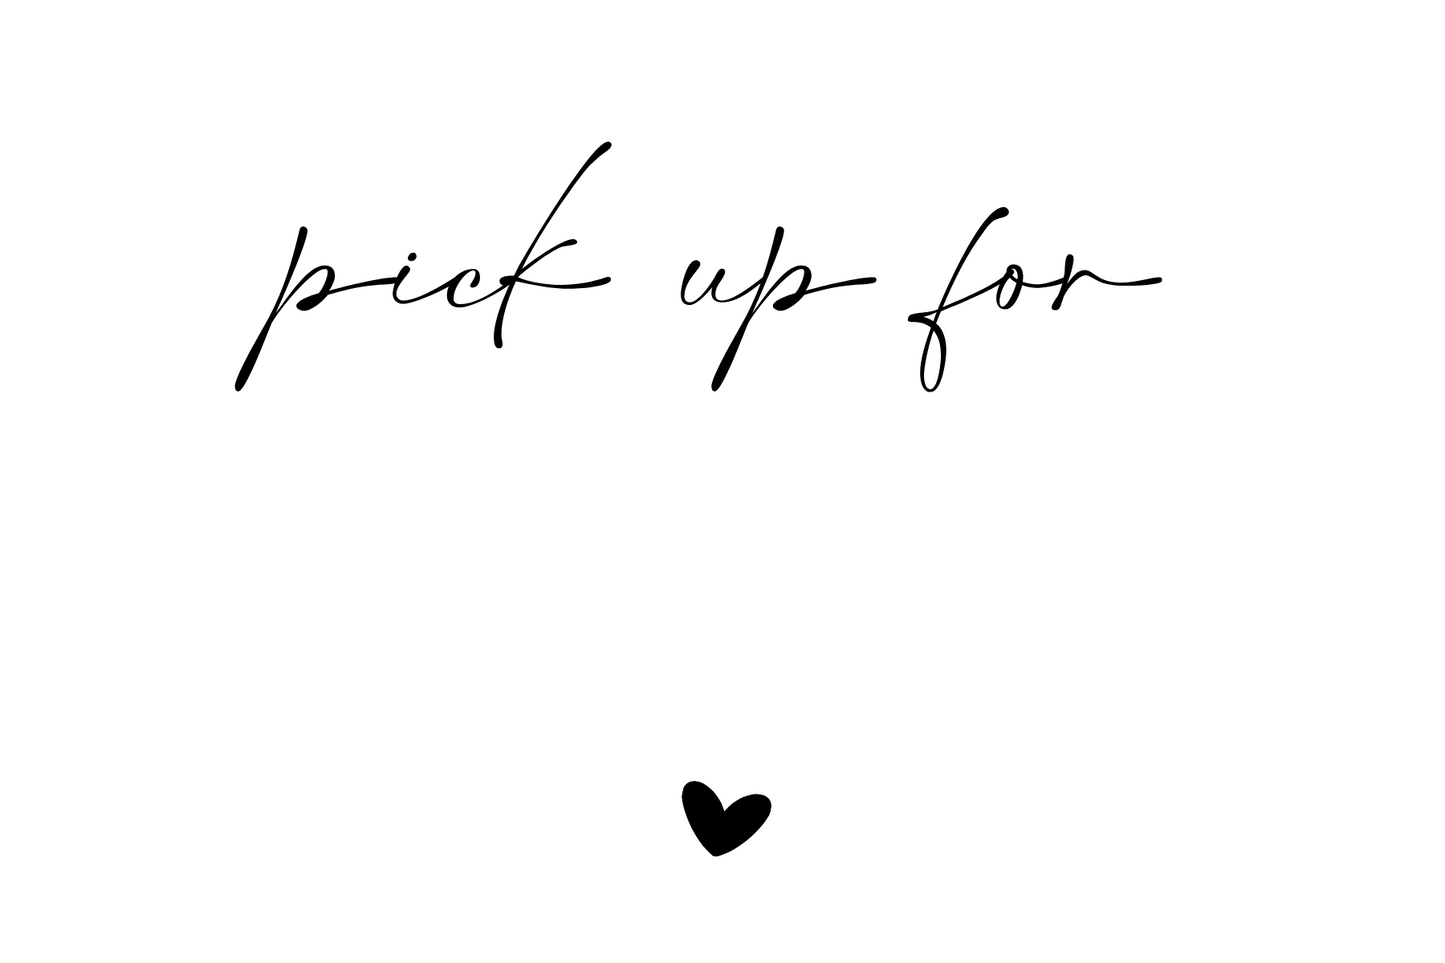 pick up for